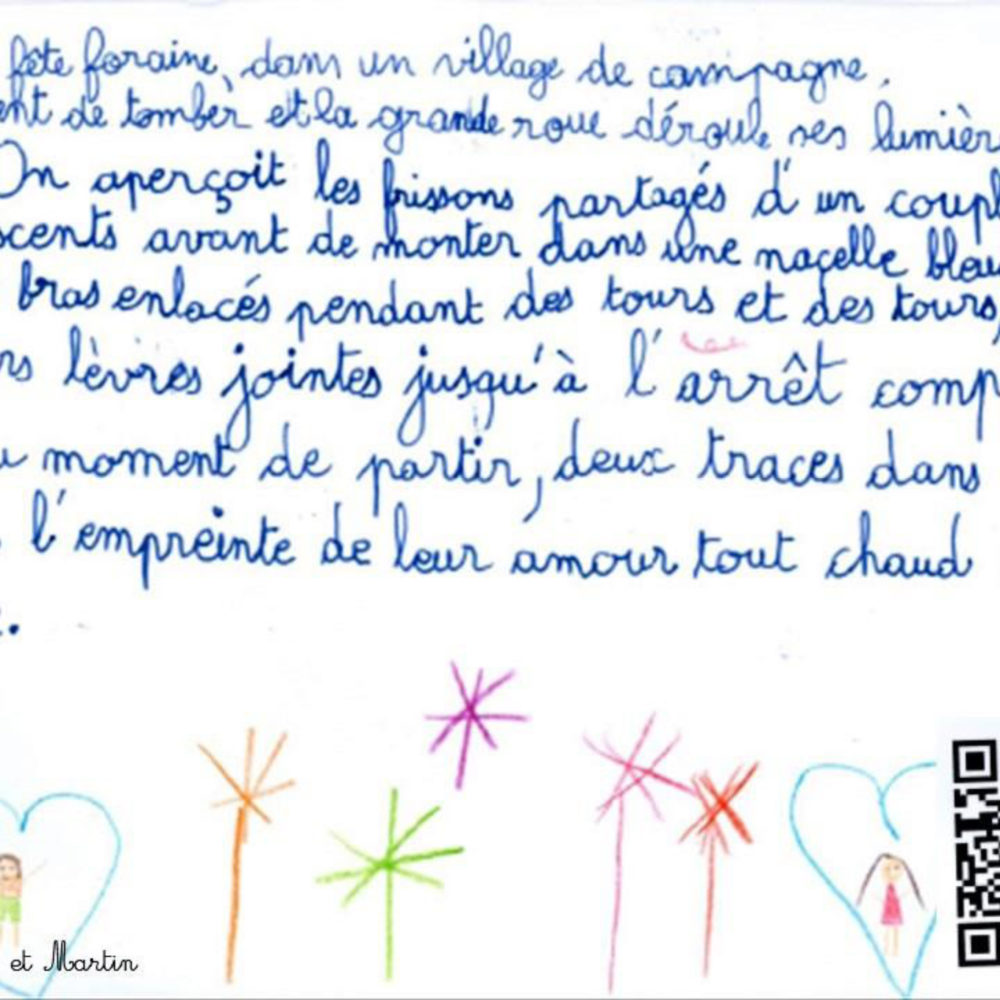 fête foraine, dans un village de campagne.
ent de tomber et la grande roue déroule ses lumièr
On aperçoit les frissons partagés d'un coupl
scents avant de monter dans une naçelle bleu
bras enlacés pendant des tours et des tours,
rs lèvres jointes jusqu'à l'arrêt comp
u moment de partir, deux traces dans
l'empreinte de leur amour tout chaud
.
et Martin